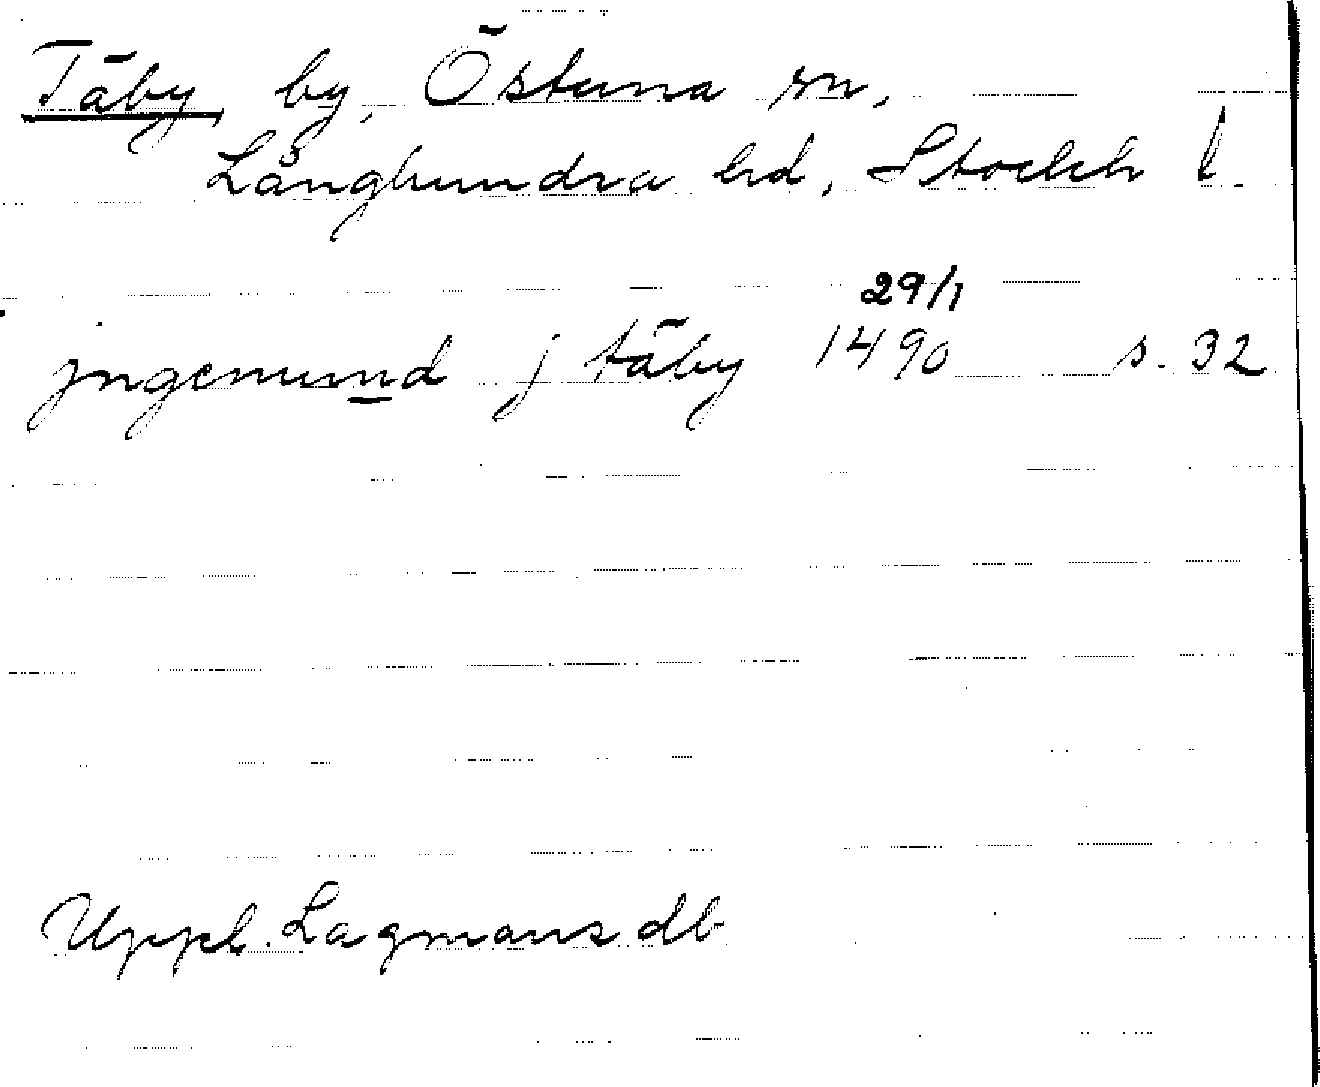 Täby, by, Östuna sn,
Långhundra hd, Stockh l.
29/1
jngemund j täby 1490 s. 32
Uppl. Lagmansdb